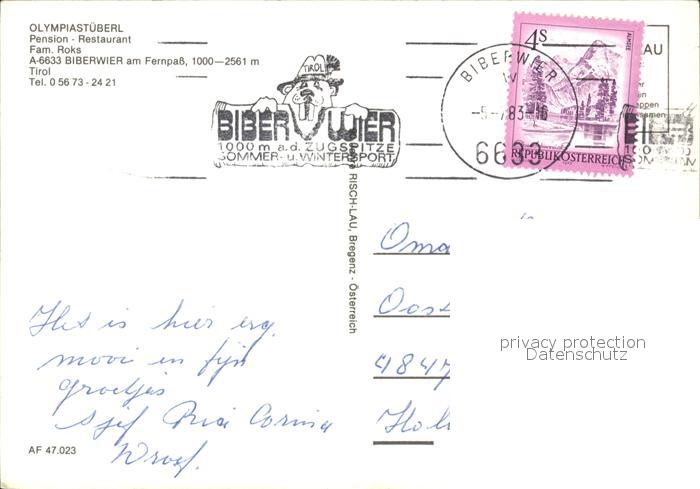 OLYMPIASTÜBERL
Pension - Restaurant
Fam. Roks
A-6633 BIBERWIER am Fernpaß, 1000—2561 m
Tirol
Tel. 0 56 73 - 24 21
TIROL
BIBERWIER
1000 m a.d. ZUGSPITZE
SOMMER- u. WINTERSPORT
BIBERWIER
83-16
6633
4S
ALMSEE
REPUBLIK ÖSTERREICH
LAU
RISCH-LAU, Bregenz - Österreich
Oma
Oos
4847
Hol
privacy protection
Datenschutz
Het is hier erg
mooi en fijn
groetjes
Sjef Ria Corina
AF 47.023